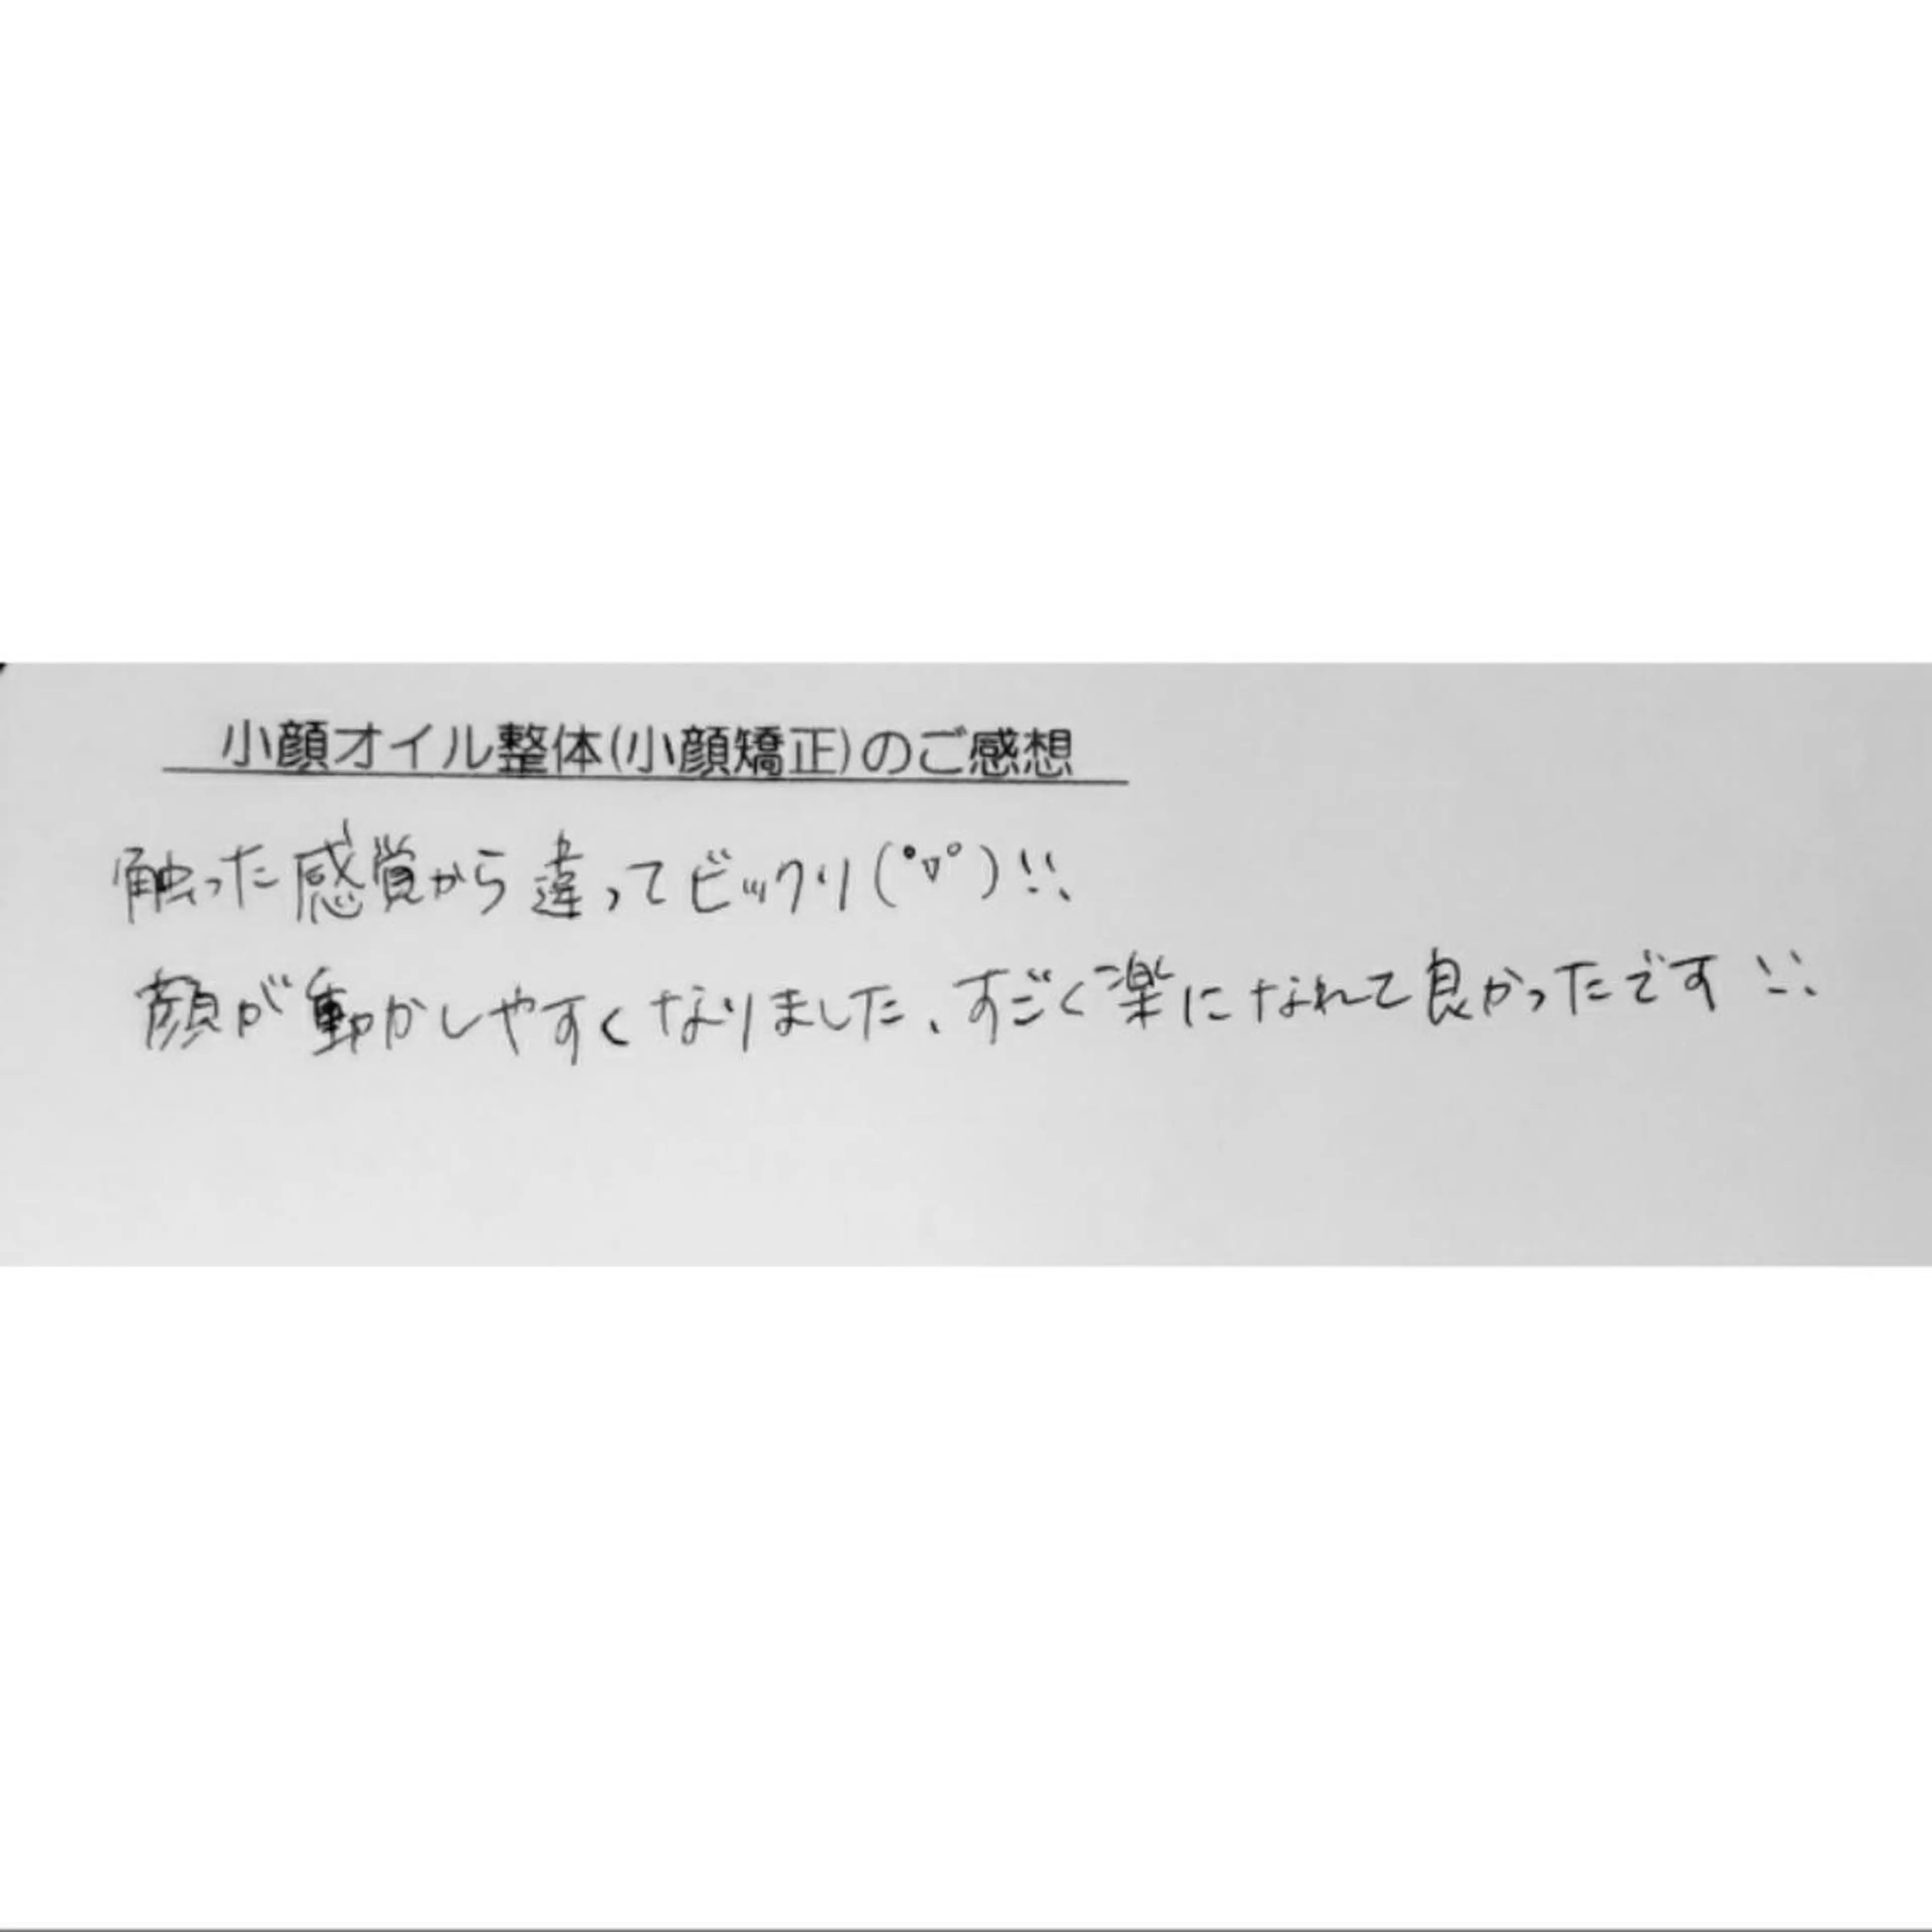 小顔オイル整体(小顔矯正)のご感想
触った感覚から違ってビックリ(°▽°)!!
顔が動かしやすくなりました、すごく楽になれて良かったです!!